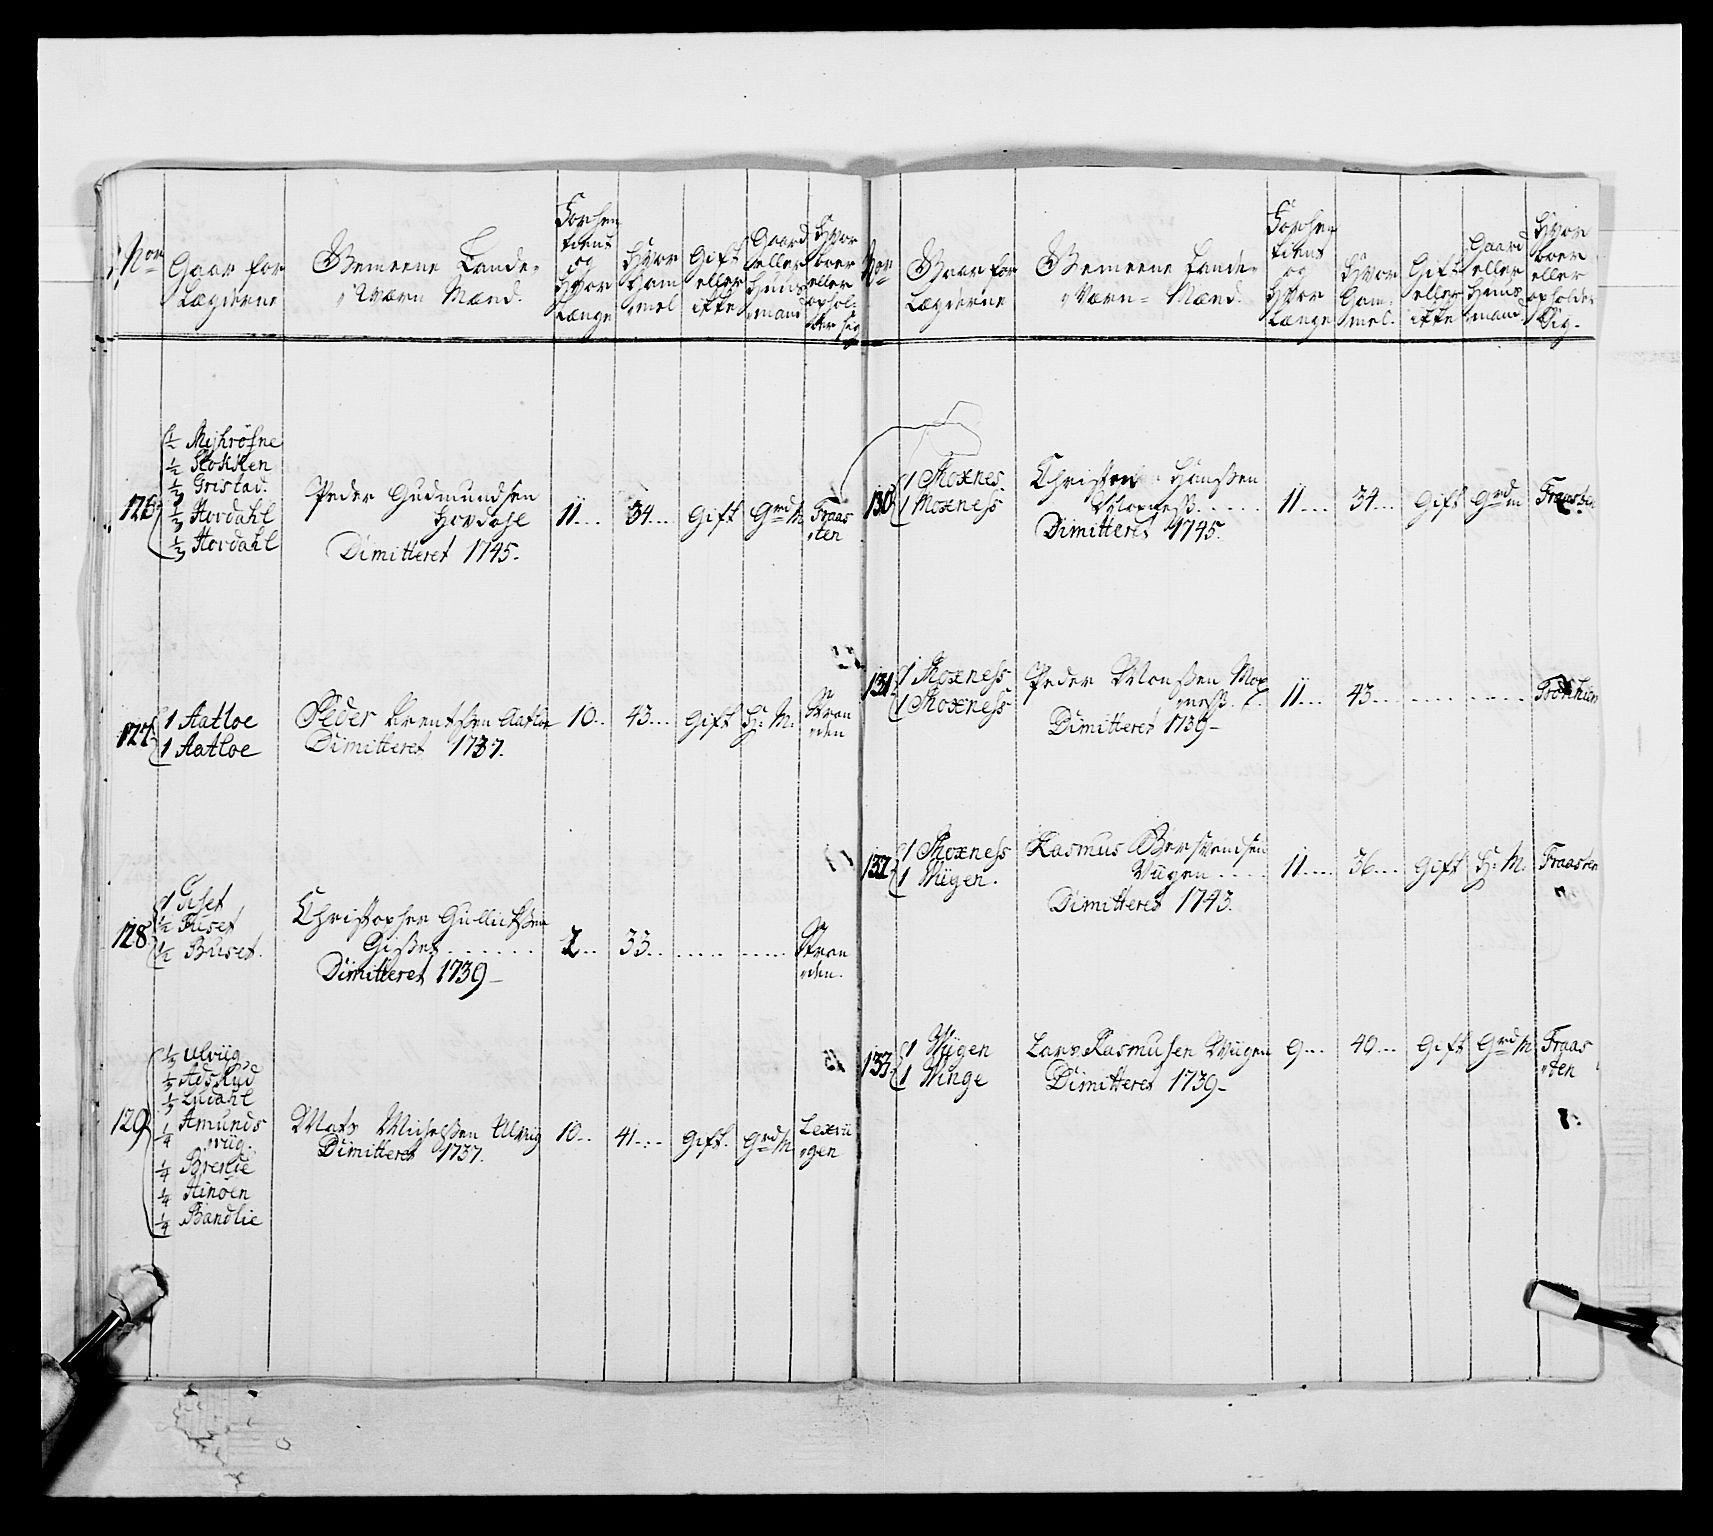 Nor
Gaar for
Lægderne
Gemeene Lande-
Værn Mænd.
For hen
tient
og
hvor
Længe
hvor
Gam
mel
Gift
eller
ikke
Gaard
eller
Huus
mand
Hvor
boer
eller
ophol-
der sig
126
½ Mijhrösne
½ Stokken
⅓ Gristad.
⅓ Hovdahl
⅓ Hovdahl
Peder Gudmundsen
Hovdahl
Dimitteret 1745.
11... 34... Gift Grd M.
Fraas
ten
127
1 Aatloe
1 Aatloe
Peder Arentsen Aatloe
Dimitteret 1737.
10.. 43... Gift H: M.
Stran
den
128
1 Giset
½ Fuset
½ Buset.
Christopher Gullichsen
Giset
Dimitteret 1739
2... 33...
Stran
den.
129
⅓ Ulvüg
⅓ Adskud
⅓ Lüdahl
¼ Amunds
vüg.
¼ Breslie
¼ Hinöen
¼ Bandlie
Mats Michelsen Ulvüg
Dimitteret 1737.
10... 41... Gift. Grd M.
Lexvü
gen
Nor
Gaar for
Lægderne
Gemeene Lande-
Værn Mænd.
For hen
tient
og
hvor
Længe
hvor
Gam-
mel.
Gift
eller
ikke
Gaard
eller
Huus
mand
Hvor
boer
eller
opholder
Sig.
130
1 Moxnes.
1 Moxness
Christen Hansen
Moxness
Dimitteret 1745.
11... 34... Gift Grd M Fraasten
131
1 Moxness
1 Moxness
Peder Monsen Mox
ness.
Dimitteret 1739
11... 43...
132
1 Moxness
1 Wügen.
Rasmus Bersvendsen
Wügen
Dimitteret 1743.
11... 36... Gift H: M. Fraasten
133
1 Wügen
1 Winge
Lars Rasmusen Wügen
Dimitteret 1739
9... 40... Gift Grd M.
Fraas
den